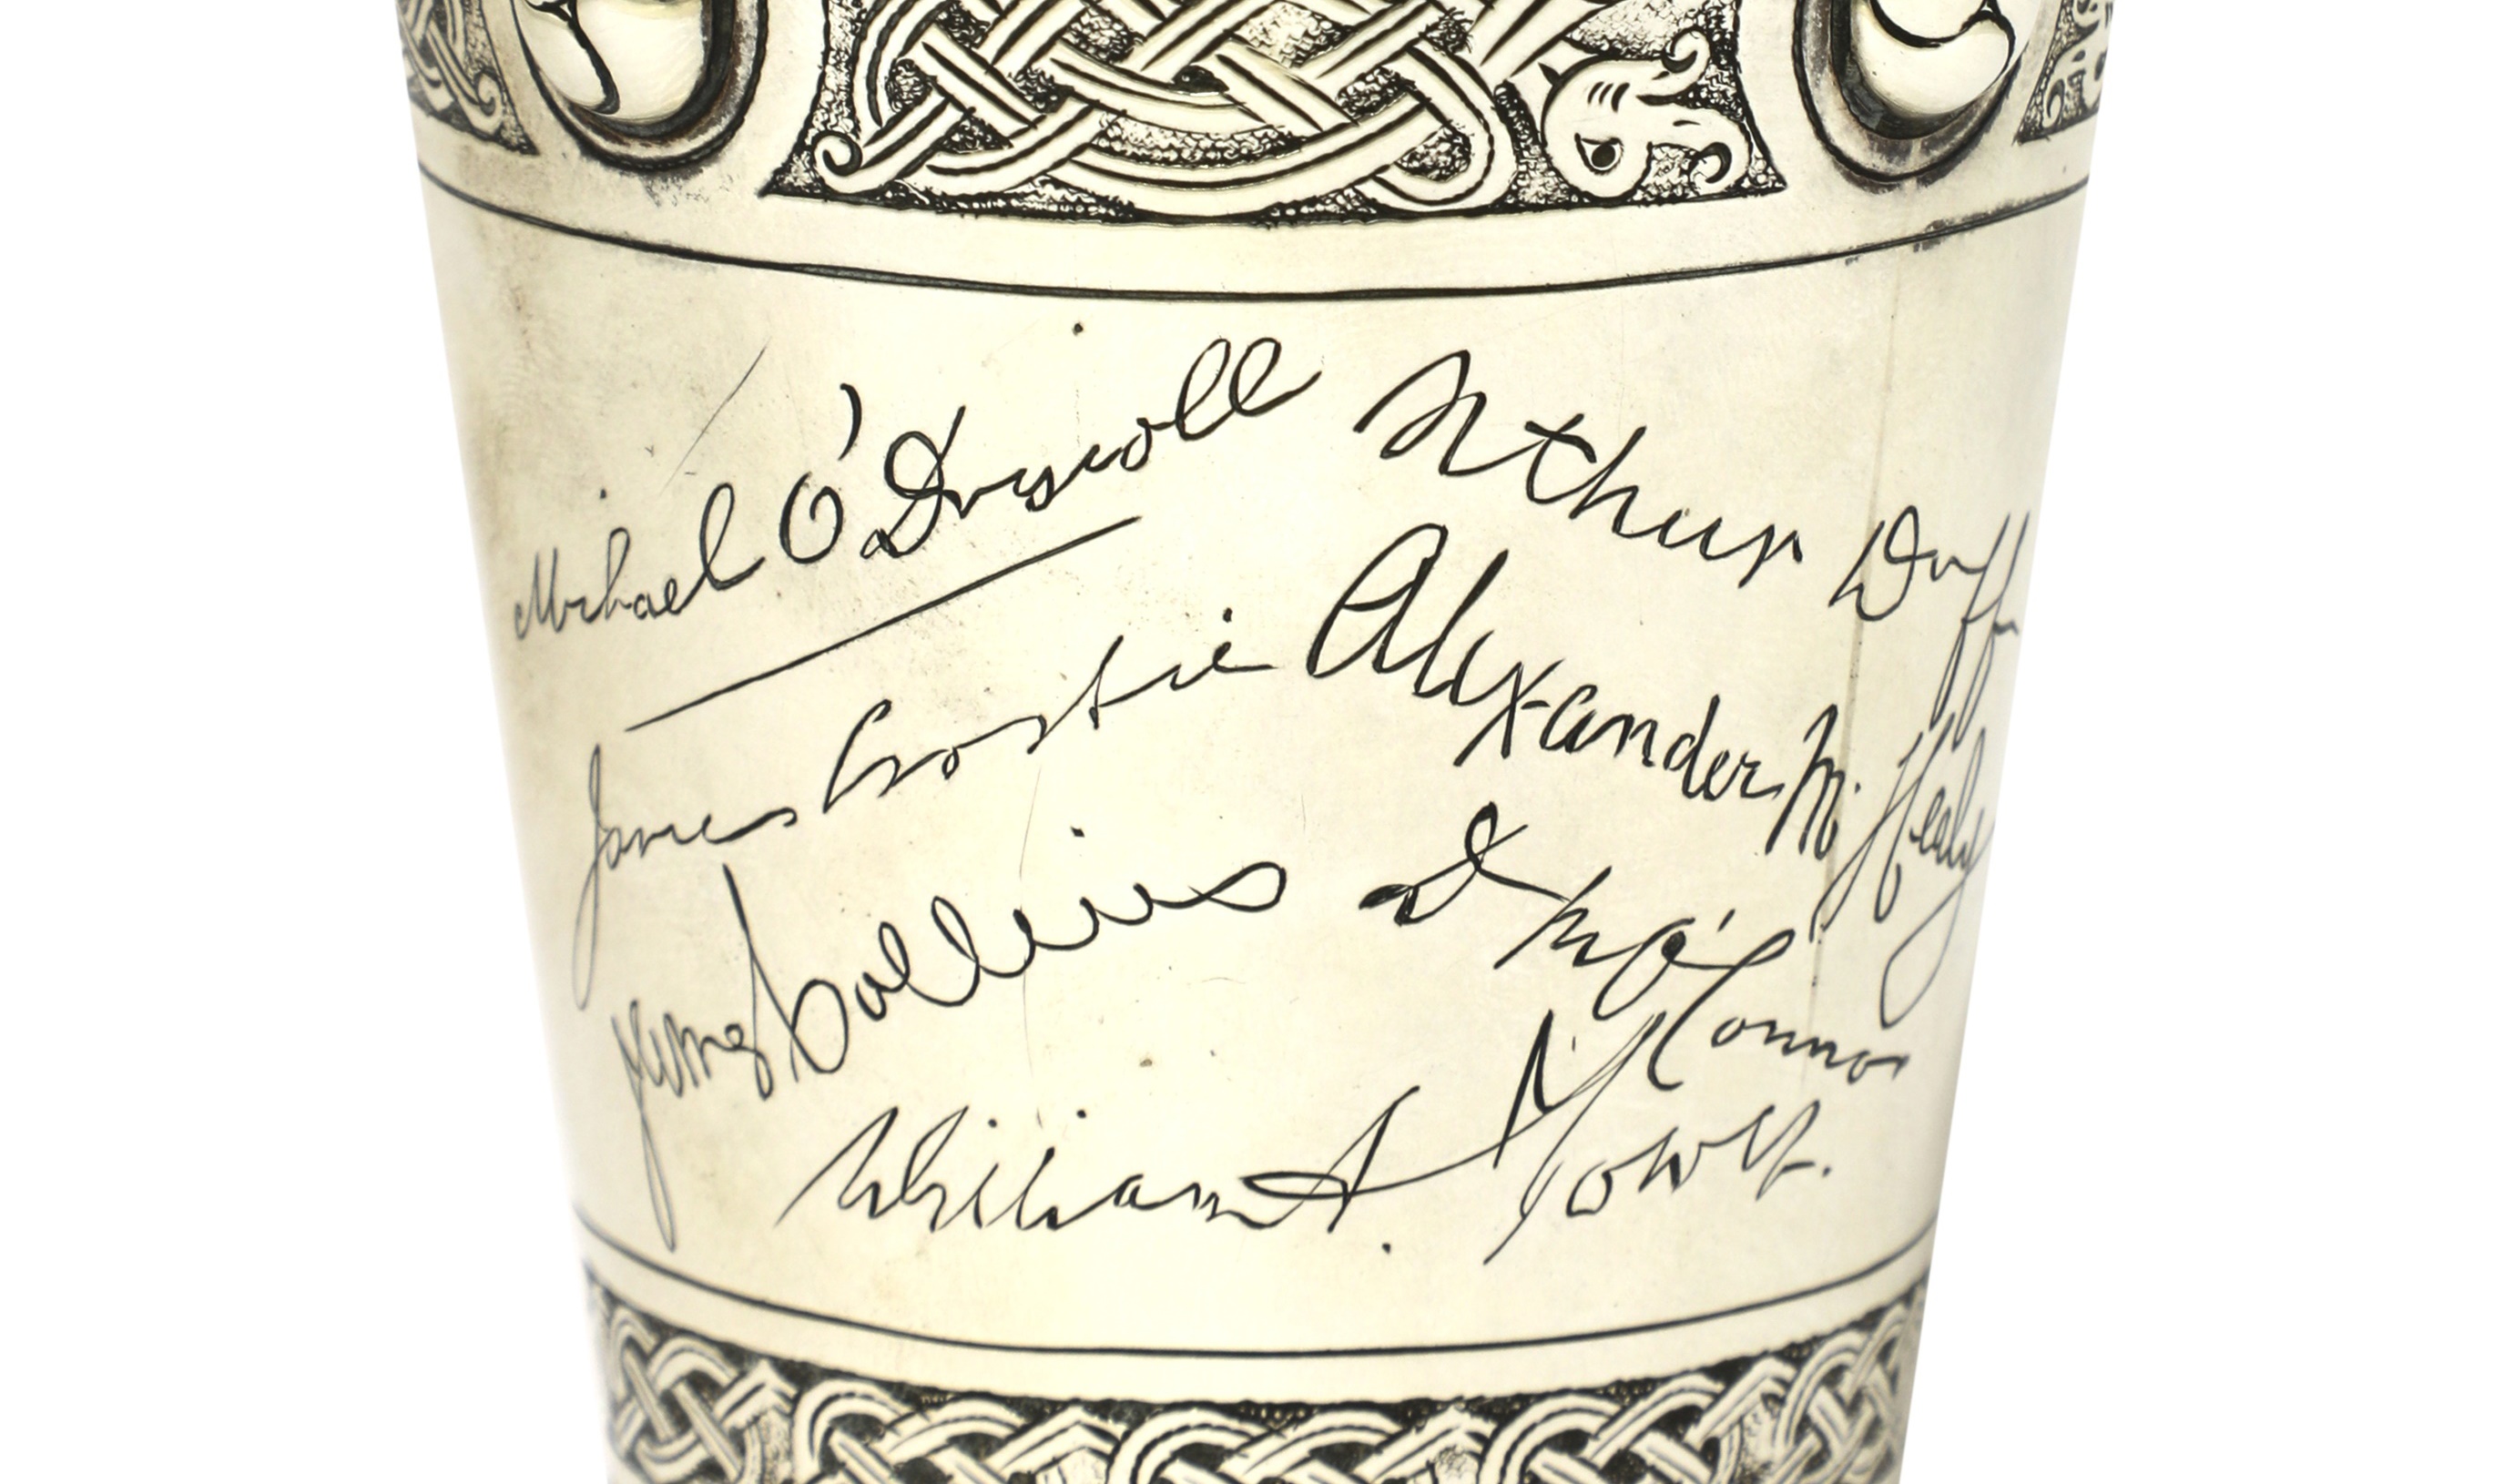 Michael O'Driscoll
Arthur Duffy
James Crostie
Alexander M. Healy
James Collins
D M O'Connor
William A.